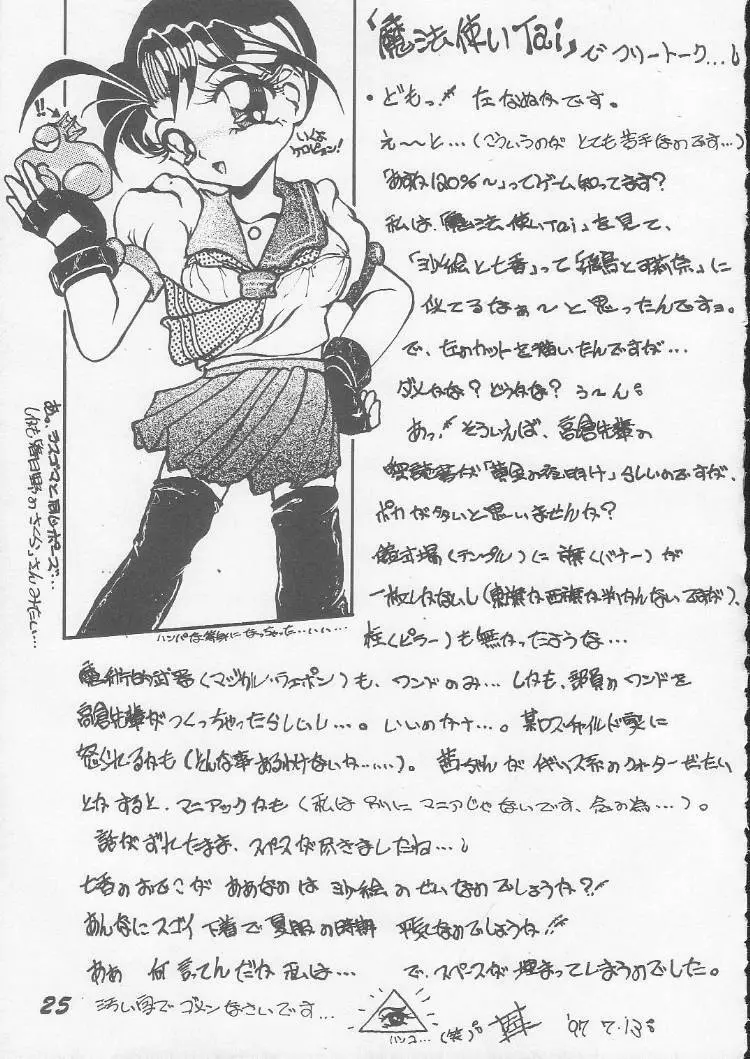 「魔法使いTai」でフリートーク…
・どもっ!! たなぬかです。
え〜と…(こういうのが とても苦手なのです…)
「あすか120%〜」ってゲーム知ってます?
私は「魔法使いTai」を見て、
「沙絵と七香」って「飛鳥と可莉奈」に
似てるなぁ〜と思ったんですョ。
で、左のカットを描いたんですが…
ダメかな? どうかな? う〜ん。
あっ!! そういえば、高倉先輩の
解説書が「黄金の夜明け」らしいのですが、
ポカが多いと思いませんか?
儀式場(テンプル)に旗(バナー)が
一枚しかないし(東旗か西旗か判かんないですが)、
柱(ピラー)も無かったような…
魔術的武器(マジカル・ウェポン)も、ワンドのみ… しかも、部員のワンドを
高倉先輩がつくっちゃったらしいし…。いいのかナ…。某ロスチャイルド家に
怒られるかも(どんな事あるわけないか……)。茜ちゃんがイギリス系のクォーターだったい
とかすると、マニアックかも(私は別にマニアじゃないです、念の為…)。
話がずれたまま、スペースが尽きましたね…
七香のおでこがああなのは沙絵のせいなのでしょうか?!!
あんなにスゴイ下着で夏服の時期 平気なのでしょうか!!
あぁ 何言ってんだか私は… で、スペースが埋まってしまうのでした。
汚い字でゴメンなさいです…
ハンコ… (笑)。
'97 7.13
25
!!
あ。ラスゴマと同じポーズ…
しかも「春日野さくら」さんみたい…
ハンパな策略になっちゃった…